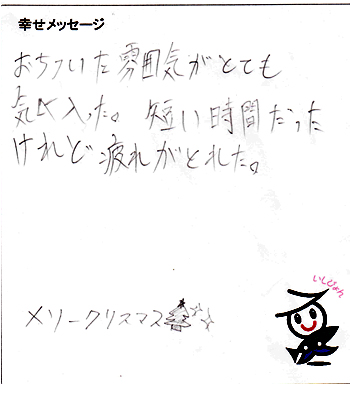 幸せメッセージ
おちついた雰囲気がとても
気に入った。短い時間だった
けれど疲れがとれた。
メリークリスマス